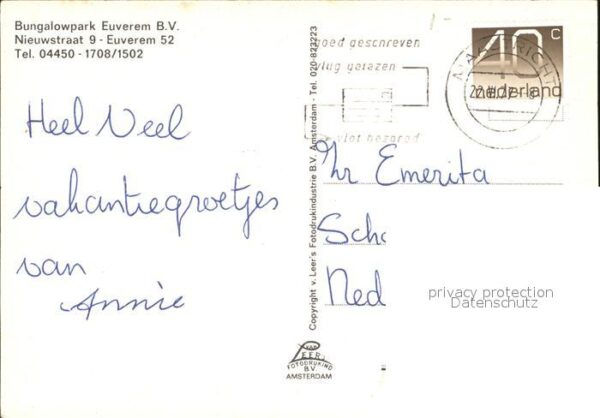 Bungalowpark Euverem B.V.
Nieuwstraat 9 - Euverem 52
Tel. 04450 - 1708/1502
Heel Veel
vakantiegroetjes
van
Annie
Copyright v. Leer's Fotodrukindustrie B.V. Amsterdam - Tel. 020-823223
goed geschreven
vlug gelezen
vlot bezorgd
MAASTRICHT
40 c
nederland
Mr Emerita
Sch
Ned
privacy protection
Datenschutz
VAN
LEER
FOTODRUKIND
B.V.
AMSTERDAM